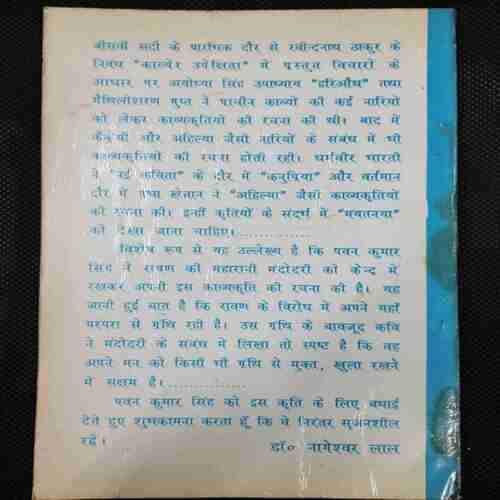 बीसवीं सदी के प्रारंभिक दौर में रवीन्द्रनाथ ठाकुर के
निबंध "काव्येर उपेक्षिता" में प्रस्तुत विचारों के
आधार पर अयोध्या सिंह उपाध्याय "हरिऔध" तथा
मैथिलीशरण गुप्त ने प्राचीन काव्यों की कई नारियों
को लेकर काव्यकृतियों की रचना की थी। बाद में
कैकेयी और अहिल्या जैसी नारियों के संबंध में भी
काव्यकृतियों की रचना होती रही। धर्मवीर भारती
ने "नई कविता" के दौर में "कनुप्रिया" और वर्तमान
दौर में प्रभा खेतान ने "अहिल्या" जैसी काव्यकृतियों
की रचना की। इन्हीं कृतियों के संदर्भ में "मयतनया"
को देखा जाना चाहिए।..............
विशेष रूप से यह उल्लेख्य है कि पवन कुमार
सिंह ने रावण की महारानी मंदोदरी को केन्द्र में
रखकर अपनी इस काव्यकृति की रचना की है। यह
जानी हुई बात है कि रावण के विरोध में अपने यहाँ
परंपरा से ग्रंथि रही है। उस ग्रंथि के बावजूद कवि
ने मंदोदरी के संबंध में लिखा तो स्पष्ट है कि वह
अपने मन को किसी भी ग्रंथि से मुक्त, खुला रखने
में सक्षम है।..............
पवन कुमार सिंह को इस कृति के लिए बधाई
देते हुए शुभकामना करता हूँ कि वे निरंतर सृजनशील
रहें।
डॉ० नागेश्वर लाल